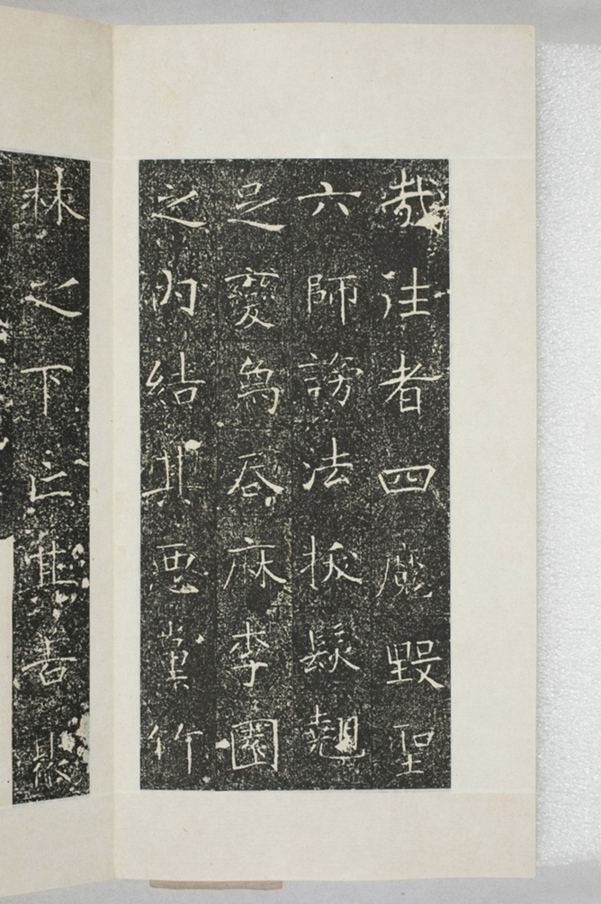 哉往者四魔毀聖
六師謗法拔髮翹
足變為吞麻李園
之内結其惡黨竹
林之下亡其善聚